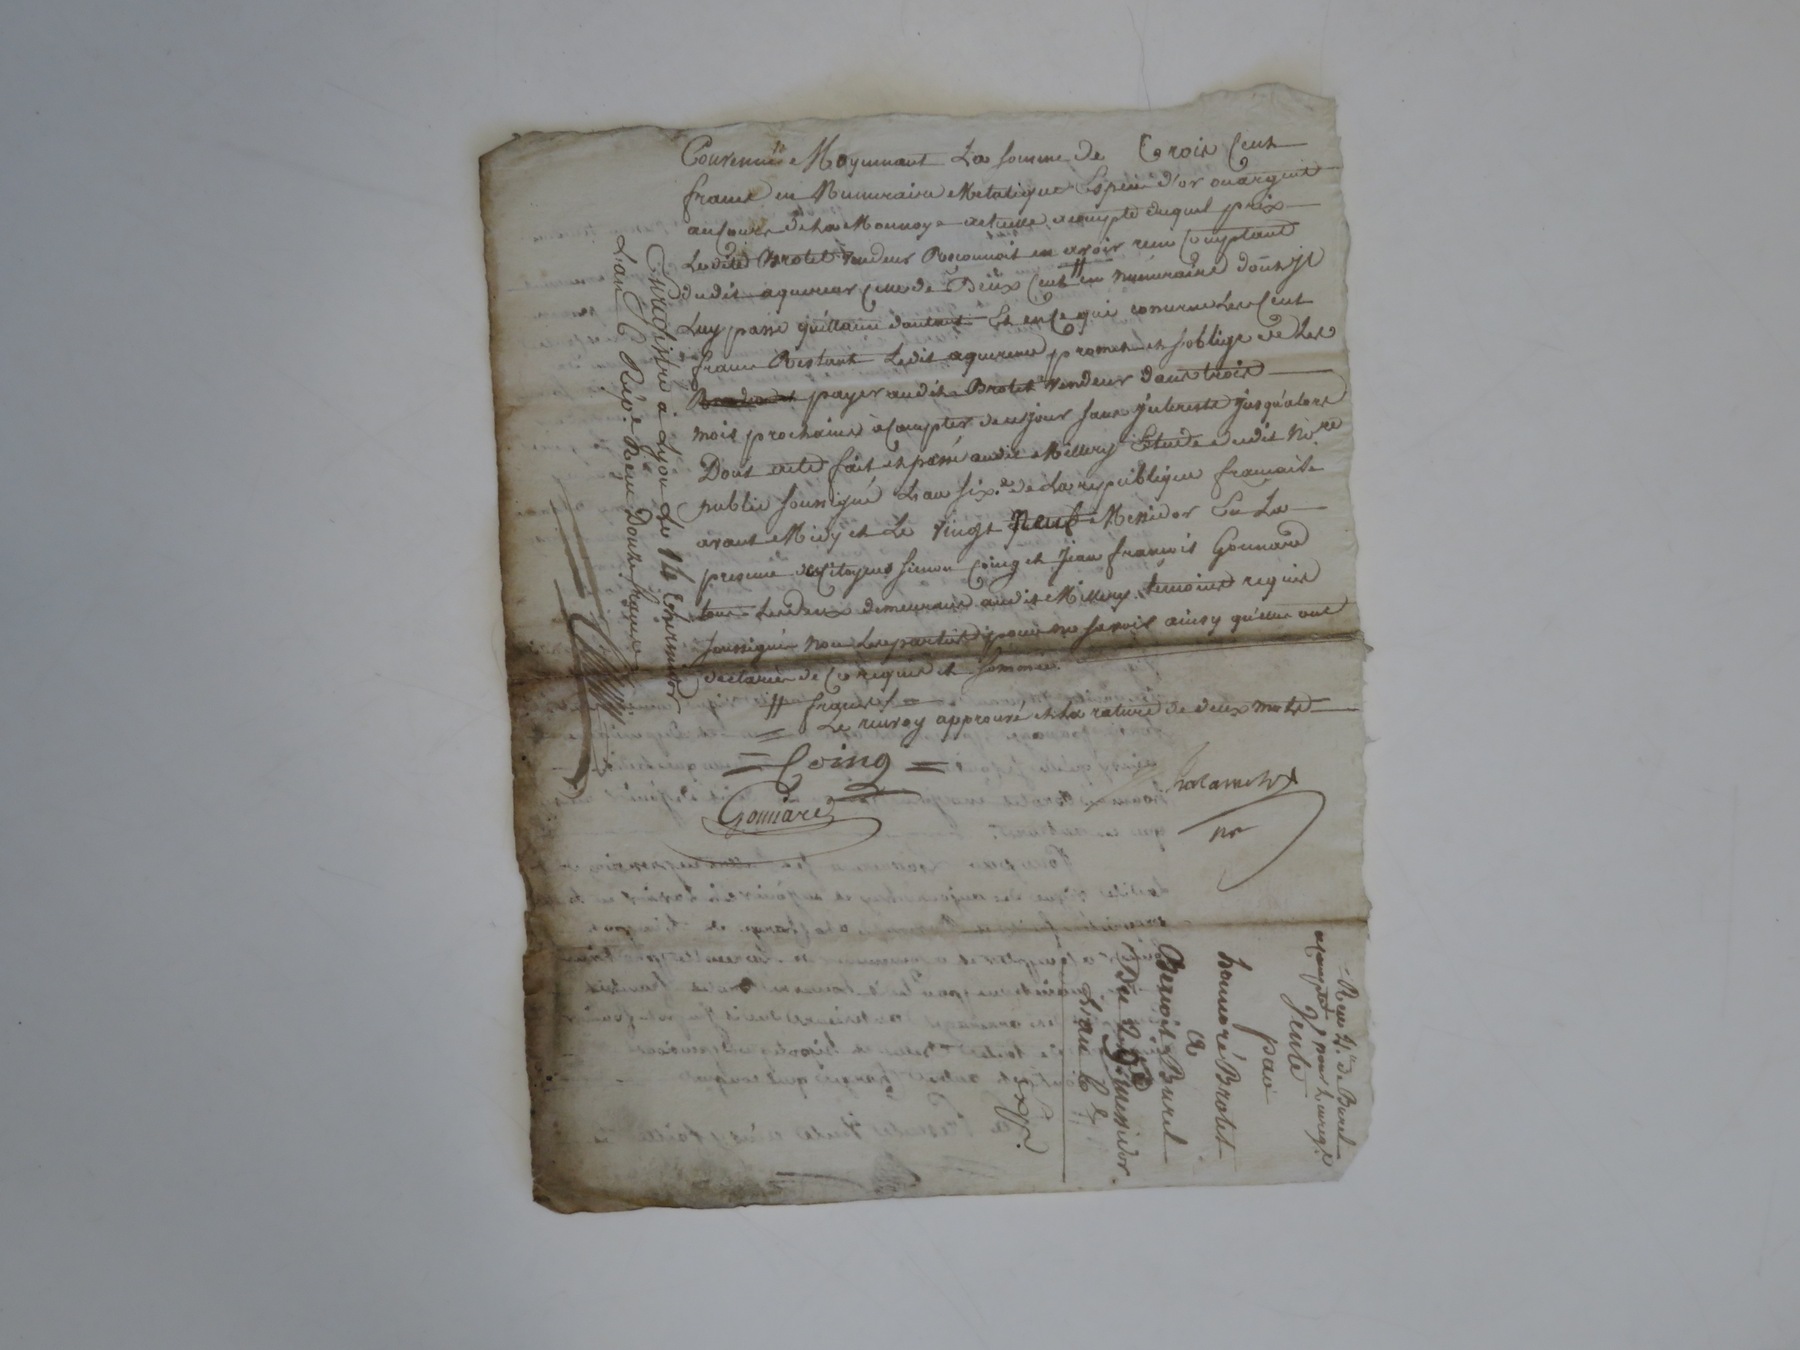 Convenue Moyennant La somme de Trois Cent
francs en Numeraire Metalique Espece d'or ou argent
au cours de La Monnoye actuelle acompte duquel prix
Ledit Brotet Vendeur Reconnoit en avoir reçu Comptant
dudit aquereur Celle de Deux Cent // en numeraire dont il
Luy passe quittance d'autant Et en ce qui concerne Les Cent
francs Restant Ledit aquereur promet et s'oblige de Les
payer audit Brotet Vendeur dans trois
mois prochains à Compter de ce jour sans interets jusqu'alors
Dont acte fait et passé audit Millery Etude dudit No.re
public soussigné L'an six.e de La republique francaise
avant Midy et Le vingt Neuf Messidor En La
presence des Citoyens Simon Coing et Jean françois Gounard
tous Les deux demeurant audit Millery temoins requis
soussignés non Les parties pour ne savoir ainsy qu'elles ont
declarées de Ce requis et sommées.
// francs
Le renvoy approuvé et La rature de deux mots
= Coing =
Gounard
nre
Enregistré à Lyon Le 14 Thermidor
L'an 6 Rep.e Reçu Douze francs
Reçu 4.# de Burel
acompte pour L'enreg.t
Vente
par
honnoré Brotet
a
Benoit Burel
Du 29 messidor
L'an 6
Exp.